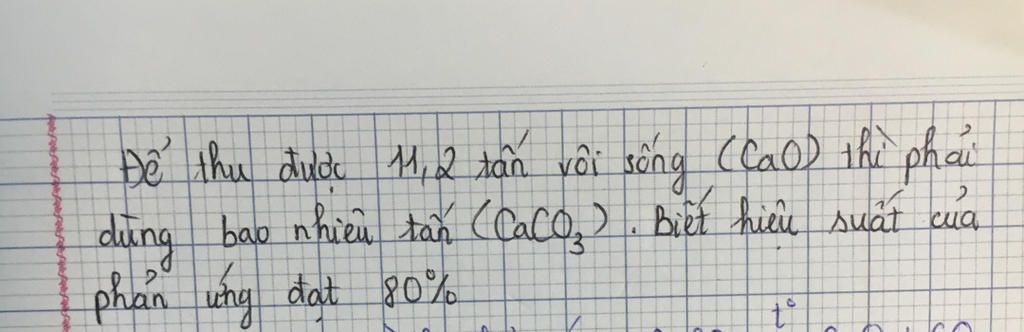 Để thu được 11,2 tấn vôi sống (CaO) thì phải
dùng bao nhiêu tấn (CaCO₃). Biết hiệu suất của
phản ứng đạt 80%
t°